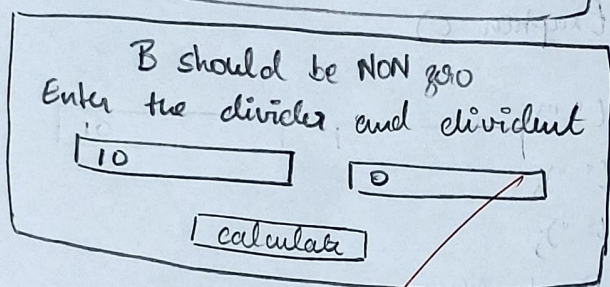 B should be NON zero
Enter the divider and divident
10 0
calculate